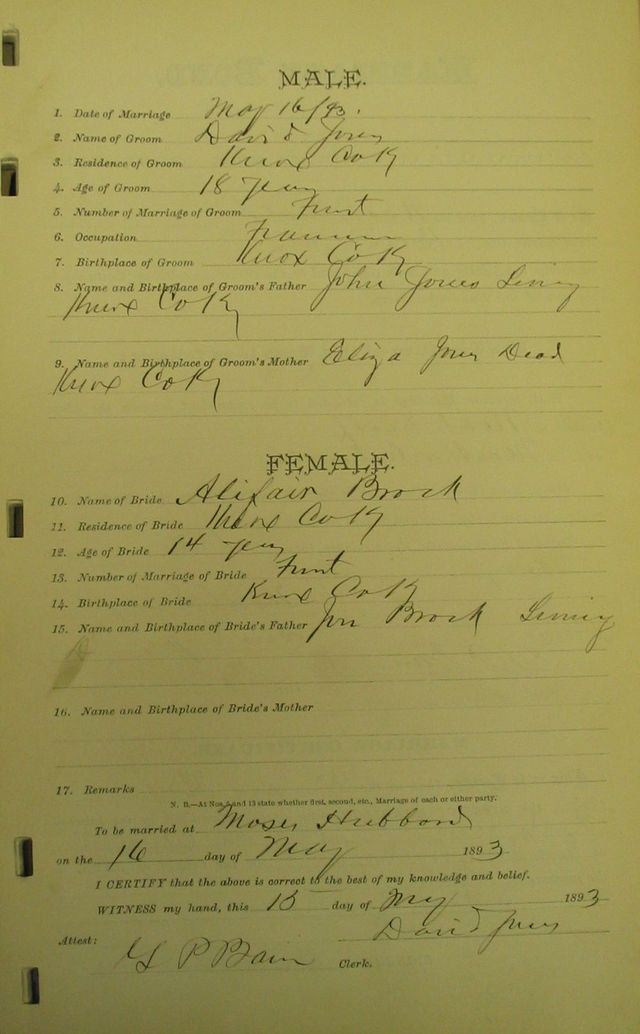 MALE.
1. Date of Marriage May 16/93.
2. Name of Groom David Jones
3. Residence of Groom Knox Co Ky
4. Age of Groom 18 years
5. Number of Marriage of Groom First
6. Occupation Farmer
7. Birthplace of Groom Knox Co Ky
8. Name and Birthplace of Groom's Father John Jones Living
Knox Co Ky
9. Name and Birthplace of Groom's Mother Eliza Jones Dead
Knox Co Ky
FEMALE.
10. Name of Bride Alifair Brock
11. Residence of Bride Knox Co Ky
12. Age of Bride 14 years
13. Number of Marriage of Bride First
14. Birthplace of Bride Knox Co Ky
15. Name and Birthplace of Bride's Father Brock Living
16. Name and Birthplace of Bride's Mother
17. Remarks
N. B.—At Nos. 5 and 13 state whether first, second, etc., Marriage of each or either party.
To be married at Moses Hubbard
on the 16 day of May 1893
I CERTIFY that the above is correct to the best of my knowledge and belief.
WITNESS my hand, this 15 day of May 1893
David Jones
Attest:
G P Bain Clerk.